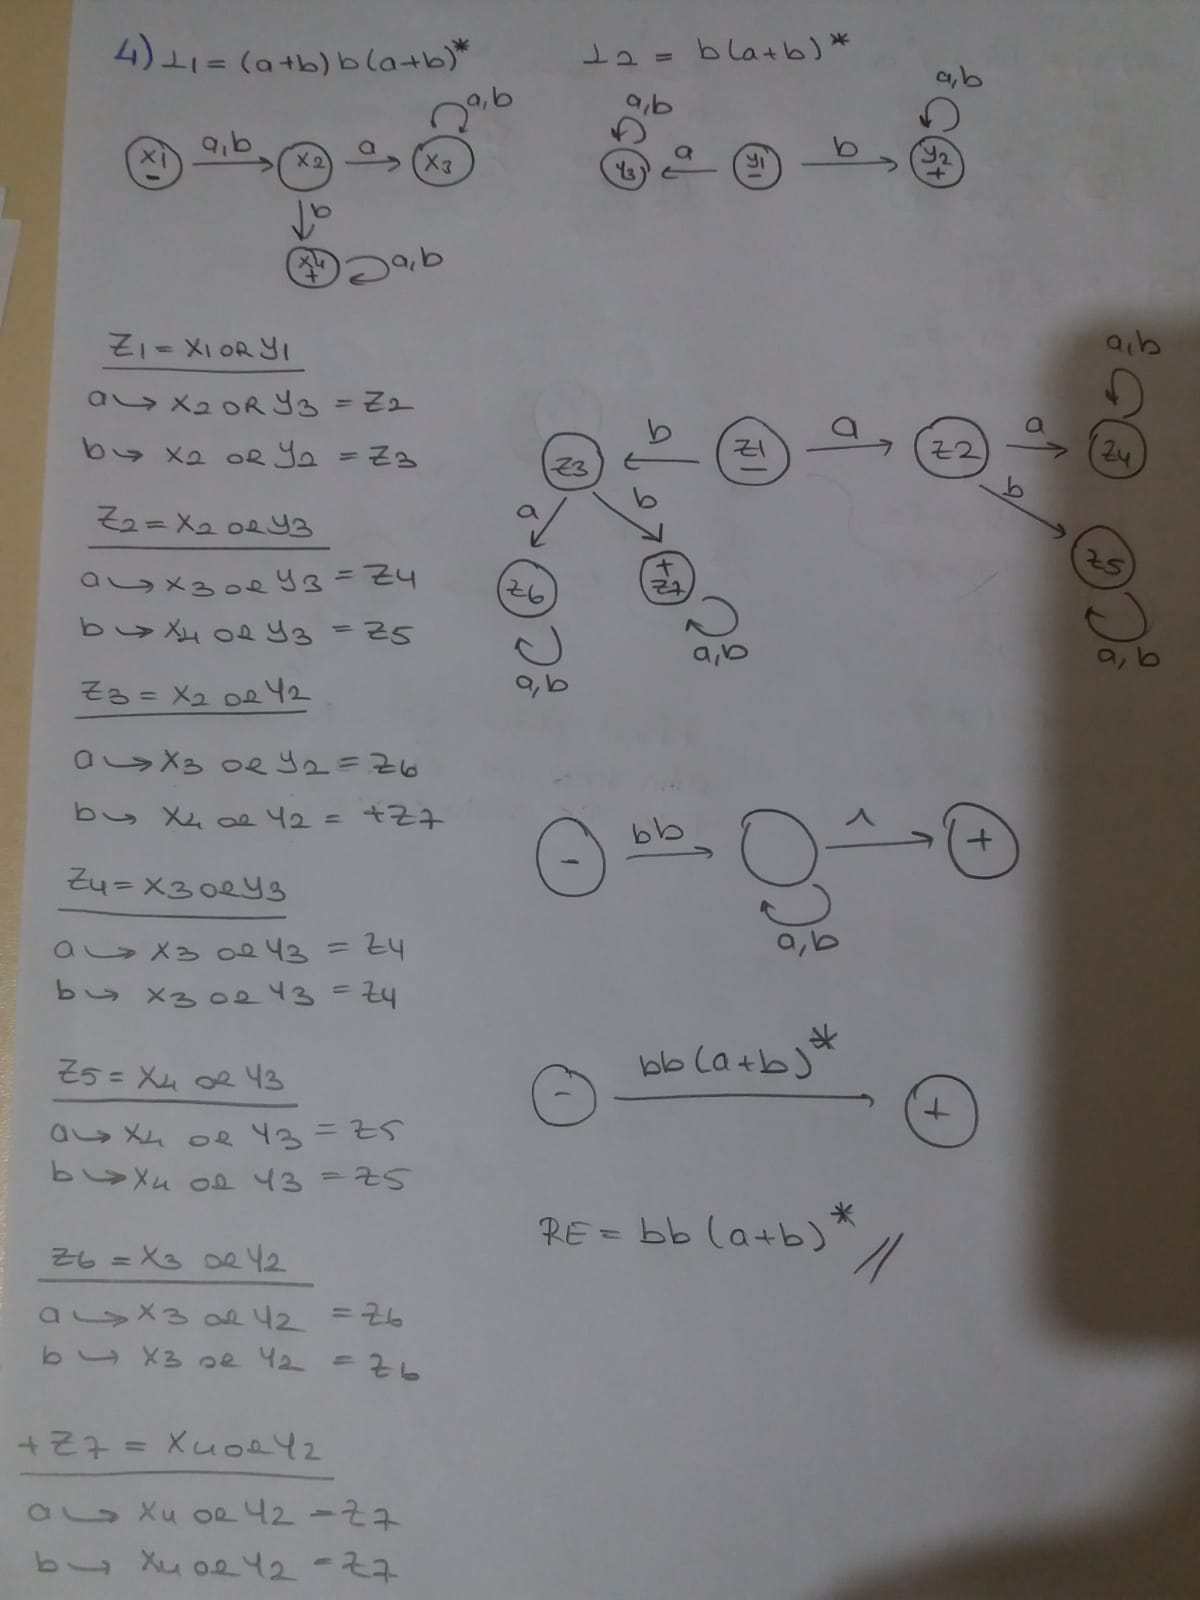 4) r1 = (a+b)b(a+b)* r2 = b(a+b)*
x1 - a,b x2 a x3 a,b
b
x4 + a,b
y3 a,b a y1 - b y2 + a,b
Z1 = X1 OR Y1
a → X2 OR Y3 = Z2
b → X2 OR Y2 = Z3
Z2 = X2 OR Y3
a → X3 OR Y3 = Z4
b → X4 OR Y3 = Z5
Z3 = X2 OR Y2
a → X3 OR Y2 = Z6
b → X4 OR Y2 = +Z7
Z4 = X3 OR Y3
a → X3 OR Y3 = Z4
b → X3 OR Y3 = Z4
Z5 = X4 OR Y3
a → X4 OR Y3 = Z5
b → X4 OR Y3 = Z5
Z6 = X3 OR Y2
a → X3 OR Y2 = Z6
b → X3 OR Y2 = Z6
+Z7 = X4 OR Y2
a → X4 OR Y2 = Z7
b → X4 OR Y2 = Z7
Z3 b Z1 - a Z2 a Z4 a,b
a b b
Z6 + Z7 Z5
a,b a,b a,b
- bb Λ +
a,b
- bb(a+b)* +
RE = bb(a+b)* //